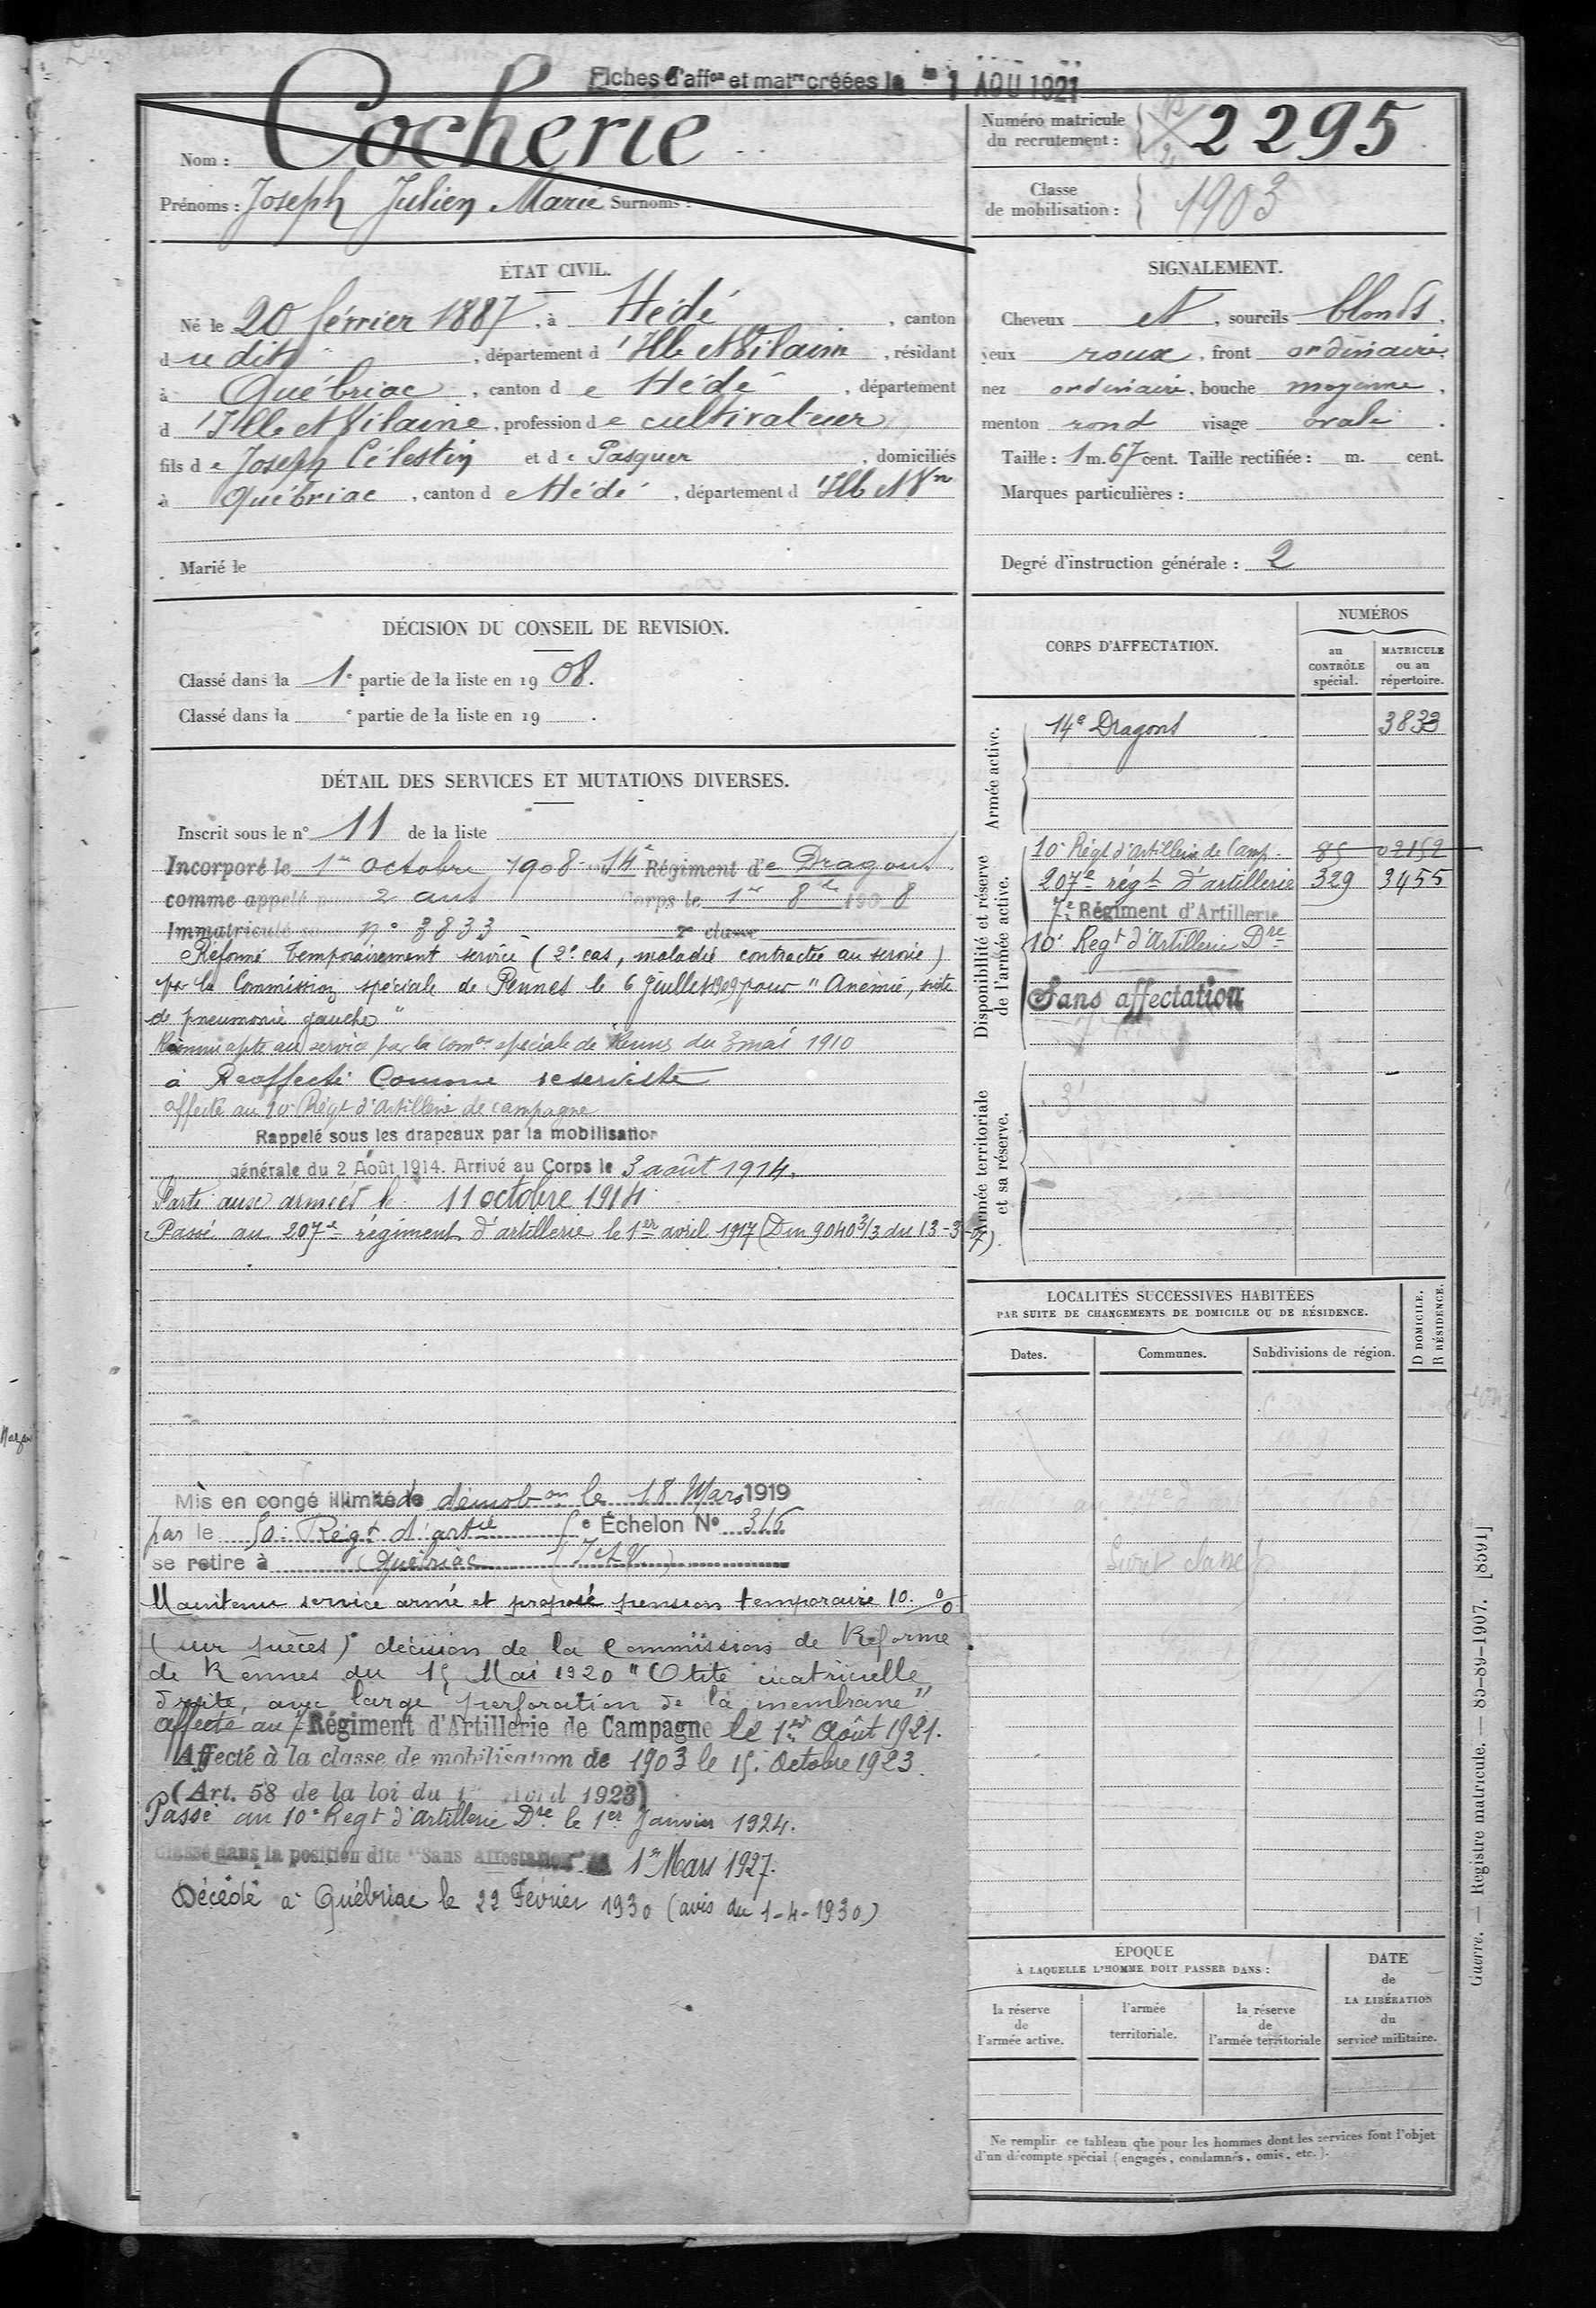 Fiches d'affon et matres créées le 1 AOU 1921
Nom : Cocherie
Prénoms : Joseph Julien Marie Surnoms :
Numéro matricule du recrutement : 2295
Classe de mobilisation : 1903
ÉTAT CIVIL.
Né le 20 février 1887, à Hédé, canton
du dit, département d'Ille et Vilaine, résidant
à Québriac, canton de Hédé, département
d'Ille et Vilaine, profession de cultivateur
fils de Joseph Célestin et de Pasquer, domiciliés
à Québriac, canton de Hédé, département d'Ill et Vne
Marié le
SIGNALEMENT.
Cheveux et, sourcils blonds,
yeux roux, front ordinaire,
nez ordinaire, bouche moyenne,
menton rond visage ovale.
Taille : 1 m. 67 cent. Taille rectifiée : m. cent.
Marques particulières :
Degré d'instruction générale : 2
DÉCISION DU CONSEIL DE REVISION.
Classé dans la 1e partie de la liste en 1908.
Classé dans la e partie de la liste en 19 .
DÉTAIL DES SERVICES ET MUTATIONS DIVERSES.
Inscrit sous le n° 11 de la liste
Incorporé le 1er octobre 1908 14e Régiment de Dragons
comme appelé 2 ans Corps le 1er 8bre 1908
Immatriculé sous n° 3833 2e classe
Réformé temporairement service (2e cas, maladie contractée au service)
par la Commission spéciale de Rennes le 6 Juillet 1909 pour "Anémie, suite
de pneumonie gauche"
Reconnu apte au service par la Comon spéciale de Rennes du 3 mai 1910
à Reaffecté Comme reserviste
affecté au 10e Régt d'Artillerie de campagne
Rappelé sous les drapeaux par la mobilisation
générale du 2 Août 1914. Arrivé au Corps le 3 août 1914.
Parti aux armées le 11 octobre 1914
Passé au 207e régiment d'artillerie le 1er avril 1917 (Dm 9040 3/3 du 13-3-17).
Mis en congé illimité de démobon le 18 Mars 1919
par le 50e Régt d'artie e Échelon N° 316
se retire à Québriac (I et V)
Maintenu service armé et proposé pension temporaire 10 %
(sur pièces) décision de la Commission de Réforme
de Rennes du 15 Mai 1920 "Otite cicatricielle
droite, avec large perforation de la membrane"
affecté au 7 Régiment d'Artillerie de Campagne le 1er Août 1921.
Affecté à la classe de mobilisation de 1903 le 15 Octobre 1923.
(Art. 58 de la loi du 1er Avril 1923)
Passé au 10e Regt d'Artillerie Dre le 1er Janvier 1924.
Classé dans la position dite "Sans Affectation" 1er Mars 1927.
Décédé à Québriac le 22 Février 1930 (avis du 1-4-1930)
CORPS D'AFFECTATION.
NUMÉROS
au CONTRÔLE spécial.
MATRICULE ou au répertoire.
Armée active.
14e Dragons 3833
Disponibilité et réserve de l'armée active.
10e Régt d'Artillerie de Camp. 85 02152
207e régt d'artillerie 329 3455
7e Régiment d'Artillerie
10e Regt d'Artillerie Dre
Sans affectation
Armée territoriale et sa réserve.
LOCALITÉS SUCCESSIVES HABITÉES
PAR SUITE DE CHANGEMENTS DE DOMICILE OU DE RÉSIDENCE.
Dates. Communes. Subdivisions de région.
D DOMICILE.
R RÉSIDENCE.
ÉPOQUE
À LAQUELLE L'HOMME DOIT PASSER DANS :
la réserve de l'armée active.
l'armée territoriale.
la réserve de l'armée territoriale
DATE de LA LIBÉRATION du service militaire.
Ne remplir ce tableau que pour les hommes dont les services font l'objet
d'un décompte spécial (engagés, condamnés, omis, etc.).
Guerre. — Registre matricule. — 85-89-1907. [8591]